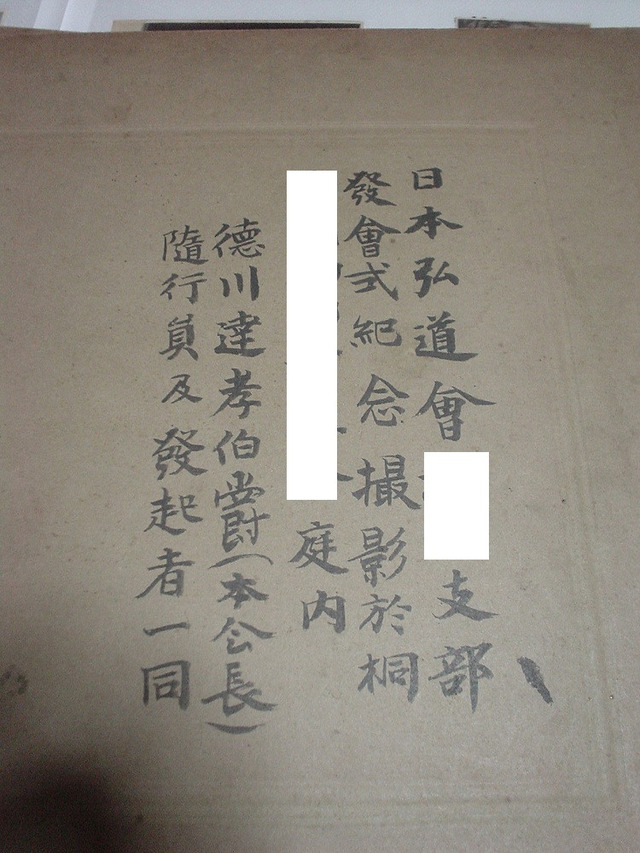 日本弘道會支部
發會式紀念撮影於桐
庭内
德川達孝伯爵(本会長)
隨行員及發起者一同